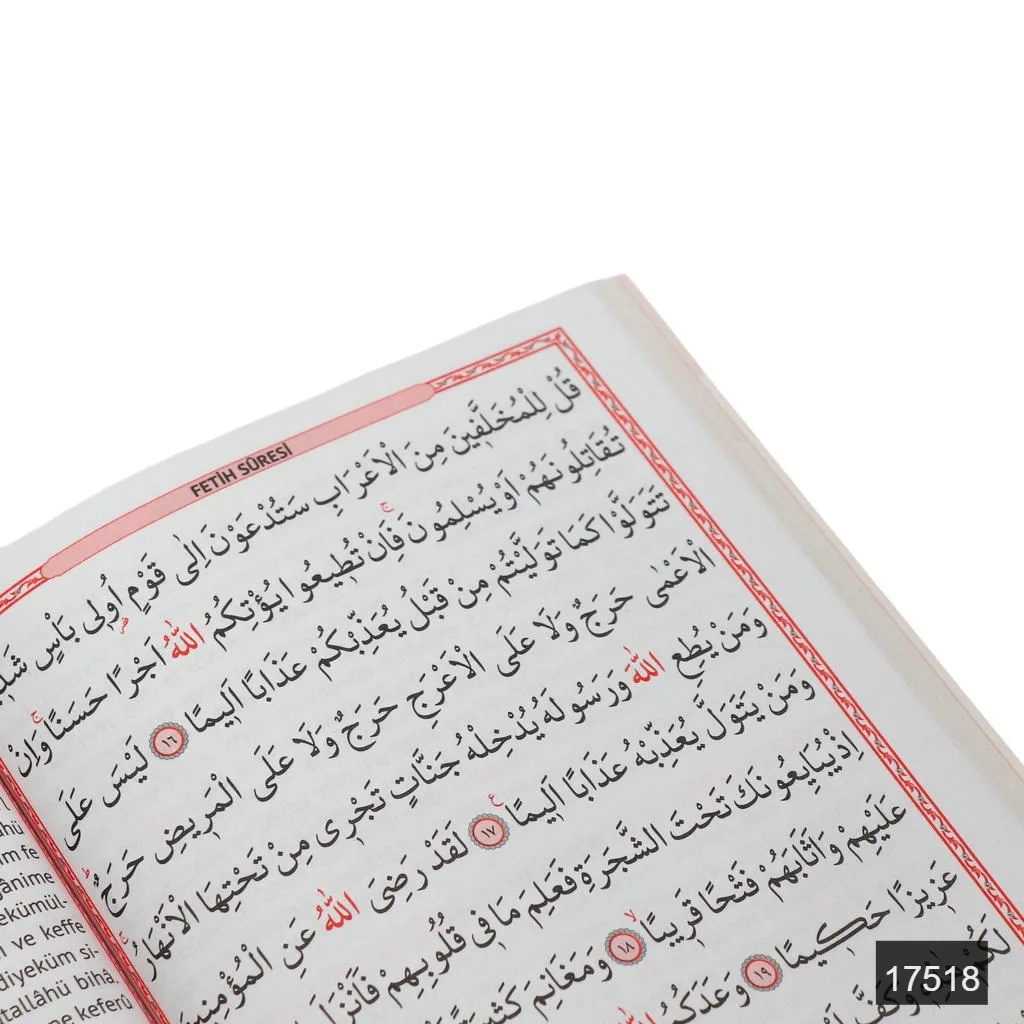 FETİH SÛRESİ
قُلْ لِلْمُخَلَّفٖينَ مِنَ الْاَعْرَابِ سَتُدْعَوْنَ اِلٰى قَوْمٍ اُو۬لٖى بَاْسٍ
تُقَاتِلُونَهُمْ اَوْ يُسْلِمُونَ فَاِنْ تُطٖيعُوا يُؤْتِكُمُ اللّٰهُ اَجْرًا حَسَنًا وَاِنْ
تَتَوَلَّوْا كَمَا تَوَلَّيْتُمْ مِنْ قَبْلُ يُعَذِّبْكُمْ عَذَابًا اَلٖيمًا ١٦ لَيْسَ عَلَى
الْاَعْمٰى حَرَجٌ وَلَا عَلَى الْاَعْرَجِ حَرَجٌ وَلَا عَلَى الْمَرٖيضِ حَرَجٌ
وَمَنْ يُطِعِ اللّٰهَ وَرَسُولَهُ يُدْخِلْهُ جَنَّاتٍ تَجْرٖى مِنْ تَحْتِهَا الْاَنْهَارُ
وَمَنْ يَتَوَلَّ يُعَذِّبْهُ عَذَابًا اَلٖيمًا ١٧ لَقَدْ رَضِىَ اللّٰهُ عَنِ الْمُؤْمِنٖينَ
اِذْ يُبَايِعُونَكَ تَحْتَ الشَّجَرَةِ فَعَلِمَ مَا فٖى قُلُوبِهِمْ فَاَنْزَلَ
عَلَيْهِمْ وَاَثَابَهُمْ فَتْحًا قَرٖيبًا ١٨ وَمَغَانِمَ
عَزٖيزًا حَكٖيمًا ١٩ وَعَدَكُمُ
وَكَفَّ
ve keffe
diyeküm si-
tallâhü bihâ
ne keferû
17518